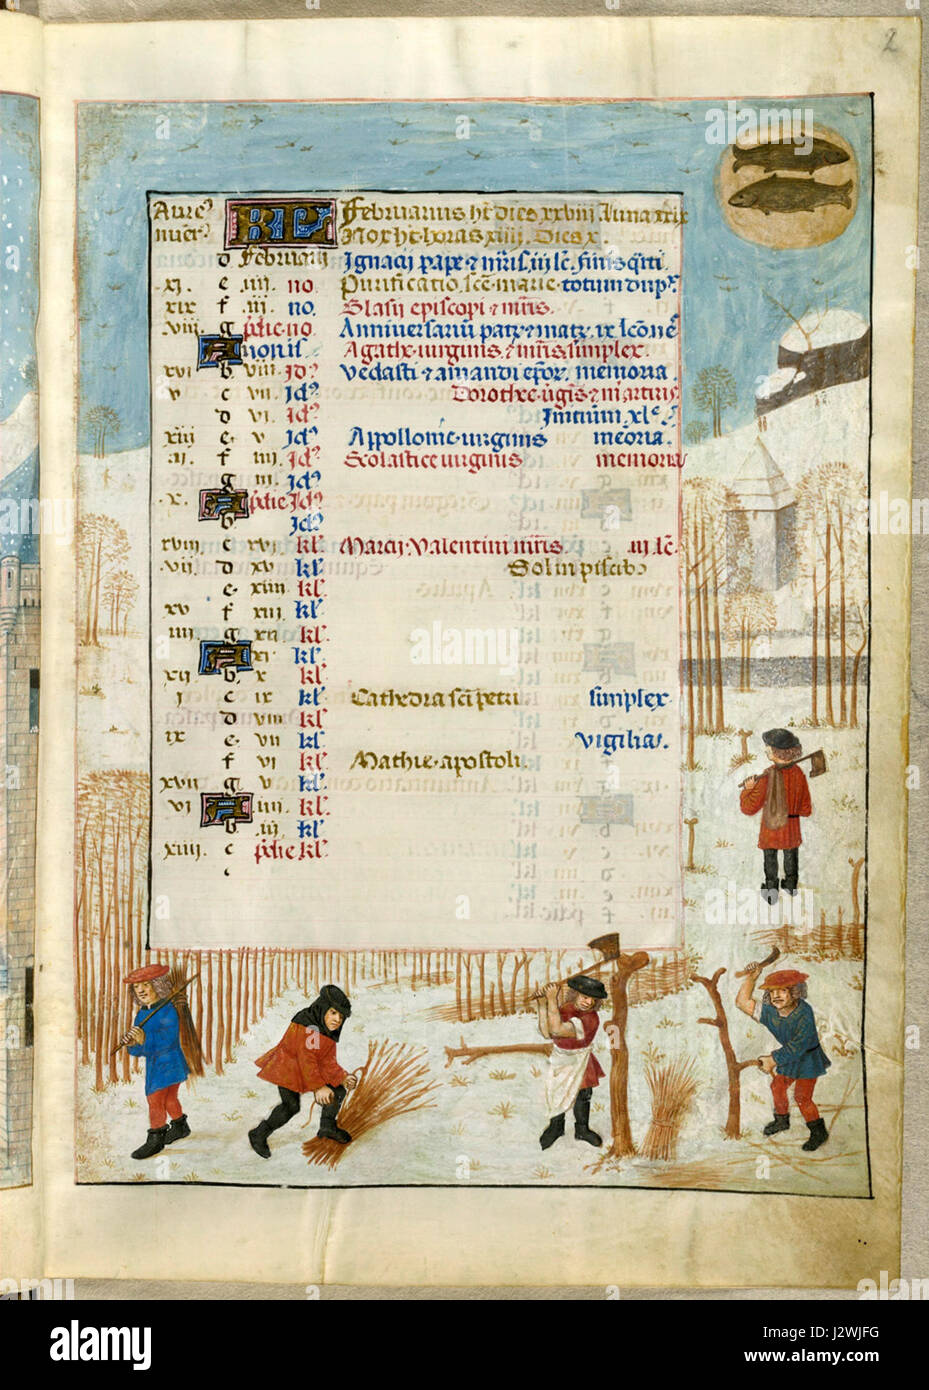 2
Aure⁹ KL Februarius ht dies xxviii luna xxix
nuer⁹ Nox ht horas xiiii. Dies x.
d Februarii Ignacii pape ⁊ mris, iii lc̄.
xi. e .iiii. no. Purificatio sce marie totum dup̄.
xix f .iii. no. Blasii episcopi ⁊ mr̄is.
viii. g pdie. no. Anniversariū patꝝ ⁊ matꝝ ix
A nonis Agathe virginis ⁊ mr̄is simplex.
xvi b viii. Id⁹ Vedasti ⁊ amandi ep̄or. memoria
v c vii. Id⁹ Dorothee v̄gis ⁊ martiris
d vi. Id⁹ Initium xl⁹.
xiii e. v. Id⁹ Appollonie virginis meōria.
ii. f iiii. Id⁹ Scolastice virginis memoria
g iii. Id⁹
x. A pdie Id⁹
b. Id⁹
xviii c xvi. kl. Marcii Valentini mr̄is iii lc̄.
vii. d xv kl. Sol in piscibꝰ
e. xiiii kl.
xv f xiii. kl.
iiii g xii kl.
A xi. kl.
xii b. x kl.
i c ix kl. Cathedra sci petri simplex
d viii kl.
ix e. vii kl. vigilia.
f vi kl. Mathie apostoli.
xvii g. v kl.
vi A iiii kl.
b .iii. kl.
xiiii. c pdie kl.
c
alamy
Image ID: J2WJFG
www.alamy.com